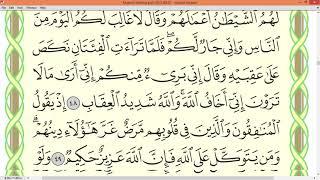 لَهُمُ ٱلشَّيْطَٰنُ أَعْمَٰلَهُمْ وَقَالَ لَا غَالِبَ لَكُمُ ٱلْيَوْمَ مِنَ
ٱلنَّاسِ وَإِنِّى جَارٌ لَّكُمْ ۖ فَلَمَّا تَرَآءَتِ ٱلْفِئَتَانِ نَكَصَ
عَلَىٰ عَقِبَيْهِ وَقَالَ إِنِّى بَرِىٓءٌ مِّنكُمْ إِنِّىٓ أَرَىٰ مَا لَا
تَرَوْنَ إِنِّىٓ أَخَافُ ٱللَّهَ ۚ وَٱللَّهُ شَدِيدُ ٱلْعِقَابِ ٤٨ إِذْ يَقُولُ
ٱلْمُنَٰفِقُونَ وَٱلَّذِينَ فِى قُلُوبِهِم مَّرَضٌ غَرَّ هَٰٓؤُلَآءِ دِينُهُمْ ۗ
وَمَن يَتَوَكَّلْ عَلَى ٱللَّهِ فَإِنَّ ٱللَّهَ عَزِيزٌ حَكِيمٌ ٤٩ وَلَوْ